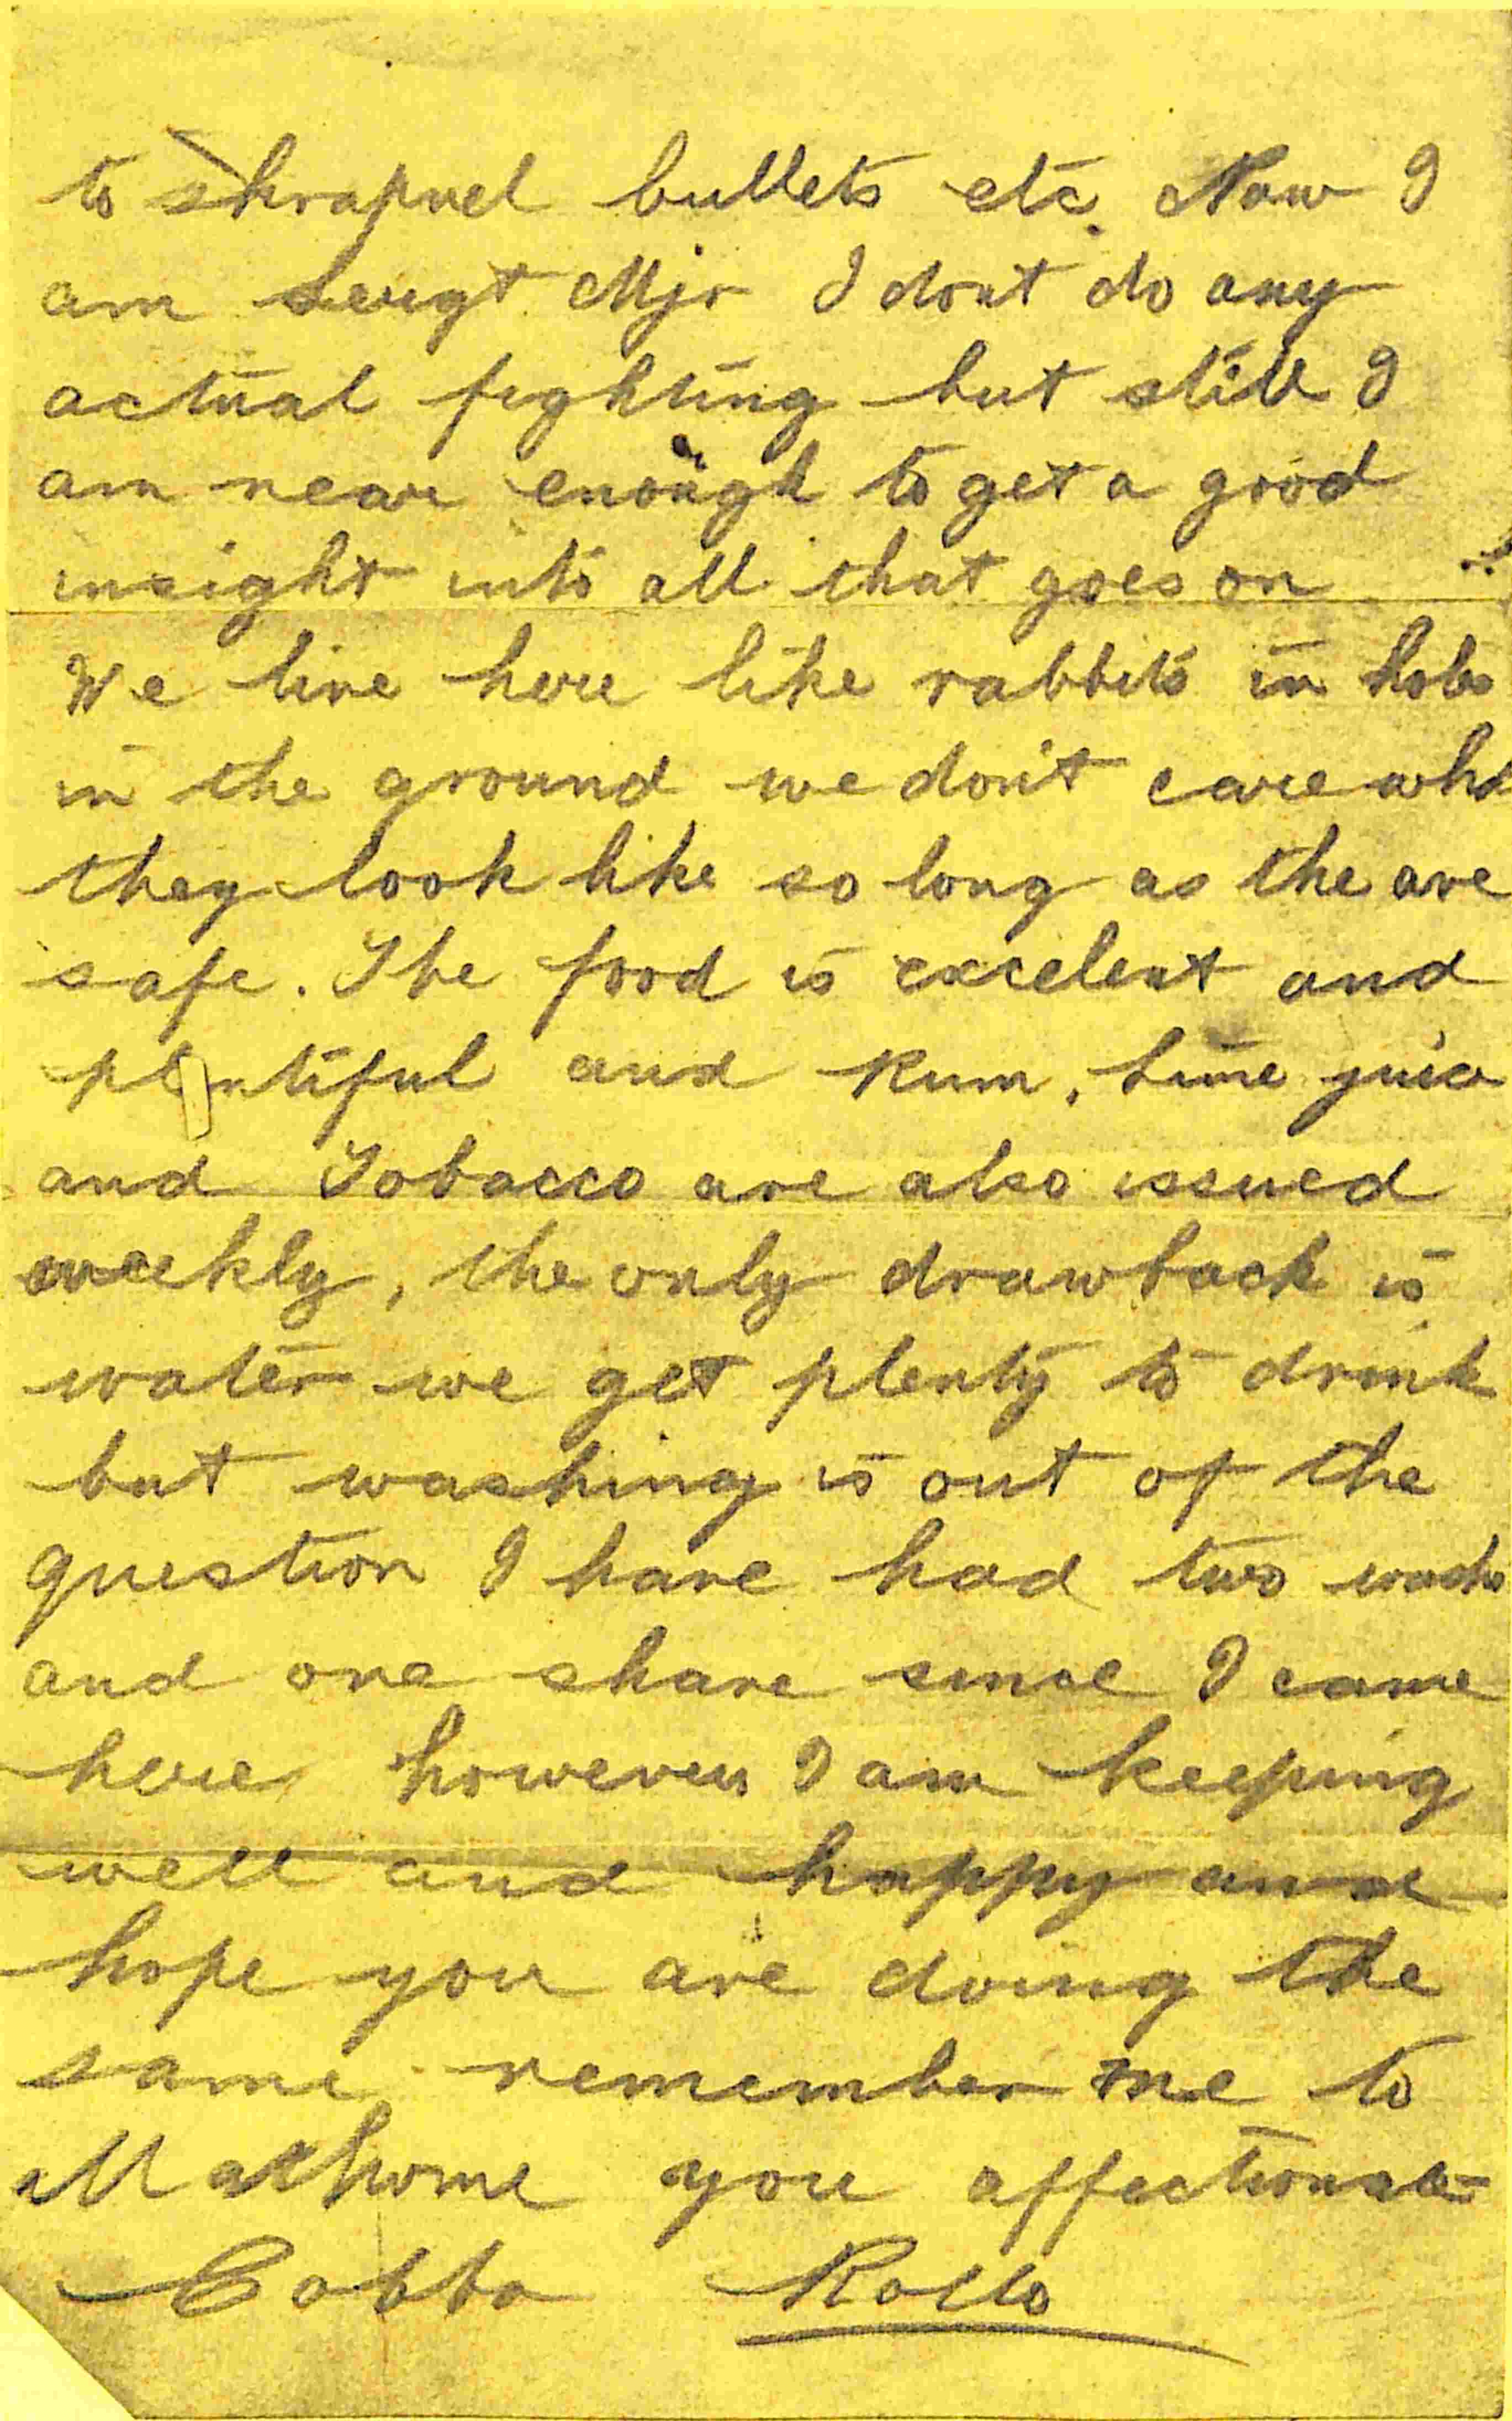 to shrapnel bullets etc. Now I
am Sergt Mjr I dont do any
actual fighting but still I
am near enough to get a good
insight into all that goes on
We live here like rabbits in holes
in the ground we don't care what
they look like so long as the are
safe. The food is excelent and
plentiful and Rum, Lime juice
and Tobacco are also issued
weekly, the only drawback is
water we get plenty to drink
but washing is out of the
question I have had two washes
and one shave since I came
here however I am keeping
well and happy and
hope you are doing the
same remember me to
all at home your affectionate
Rollo